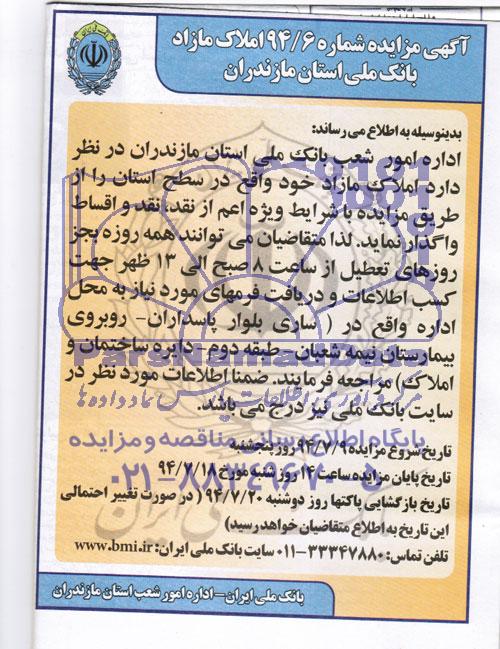 آگهی مزایده شماره ۹۴/۶ املاک مازاد
بانک ملی استان مازندران
بدینوسیله به اطلاع می رساند:
اداره امور شعب بانک ملی استان مازندران در نظر
دارد املاک مازاد خود واقع در سطح استان را از
طریق مزایده با شرایط ویژه اعم از نقد، نقد و اقساط
واگذار نماید. لذا متقاضیان می توانند همه روزه بجز
روزهای تعطیل از ساعت ۸ صبح الی ۱۳ ظهر جهت
کسب اطلاعات و دریافت فرمهای مورد نیاز به محل
اداره واقع در ( ساری بلوار پاسداران- روبروی
بیمارستان نیمه شعبان - طبقه دوم - دایره ساختمان و
املاک) مراجعه فرمایند. ضمنا اطلاعات مورد نظر در
سایت بانک ملی نیز درج می باشد.
پایگاه اطلاع رسانی مناقصه و مزایده
تاریخ شروع مزایده ۹۴/۷/۹ روز پنجشنبه
تاریخ پایان مزایده ساعت ۱۴ روز شنبه مورخ ۹۴/۷/۱۸
۰۲۱-۸۸۳۴۹۶۷۰-۵
تاریخ بازگشایی پاکتها روز دوشنبه ۹۴/۷/۲۰ ( در صورت تغییر احتمالی
این تاریخ به اطلاع متقاضیان خواهد رسید)
تلفن تماس: ۳۳۳۴۷۸۸۰-۰۱۱ سایت بانک ملی ایران: www.bmi.ir
بانک ملی ایران- اداره امور شعب استان مازندران